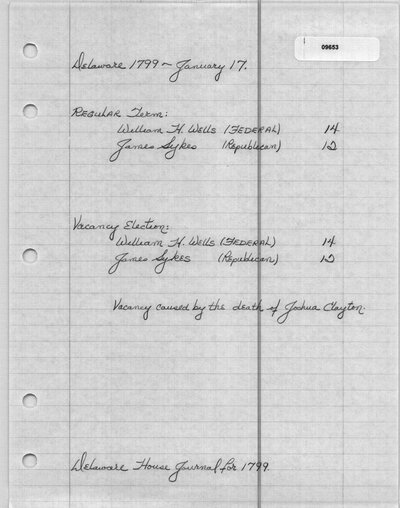 09653
Delaware 1799 ~ January 17.
Regular Term:
William H. Wells (Federal) 14
James Sykes (Republican) 12
Vacancy Election:
William H. Wells (Federal) 14
James Sykes (Republican) 12
Vacancy caused by the death of Joshua Clayton.
Delaware House Journal for 1799.